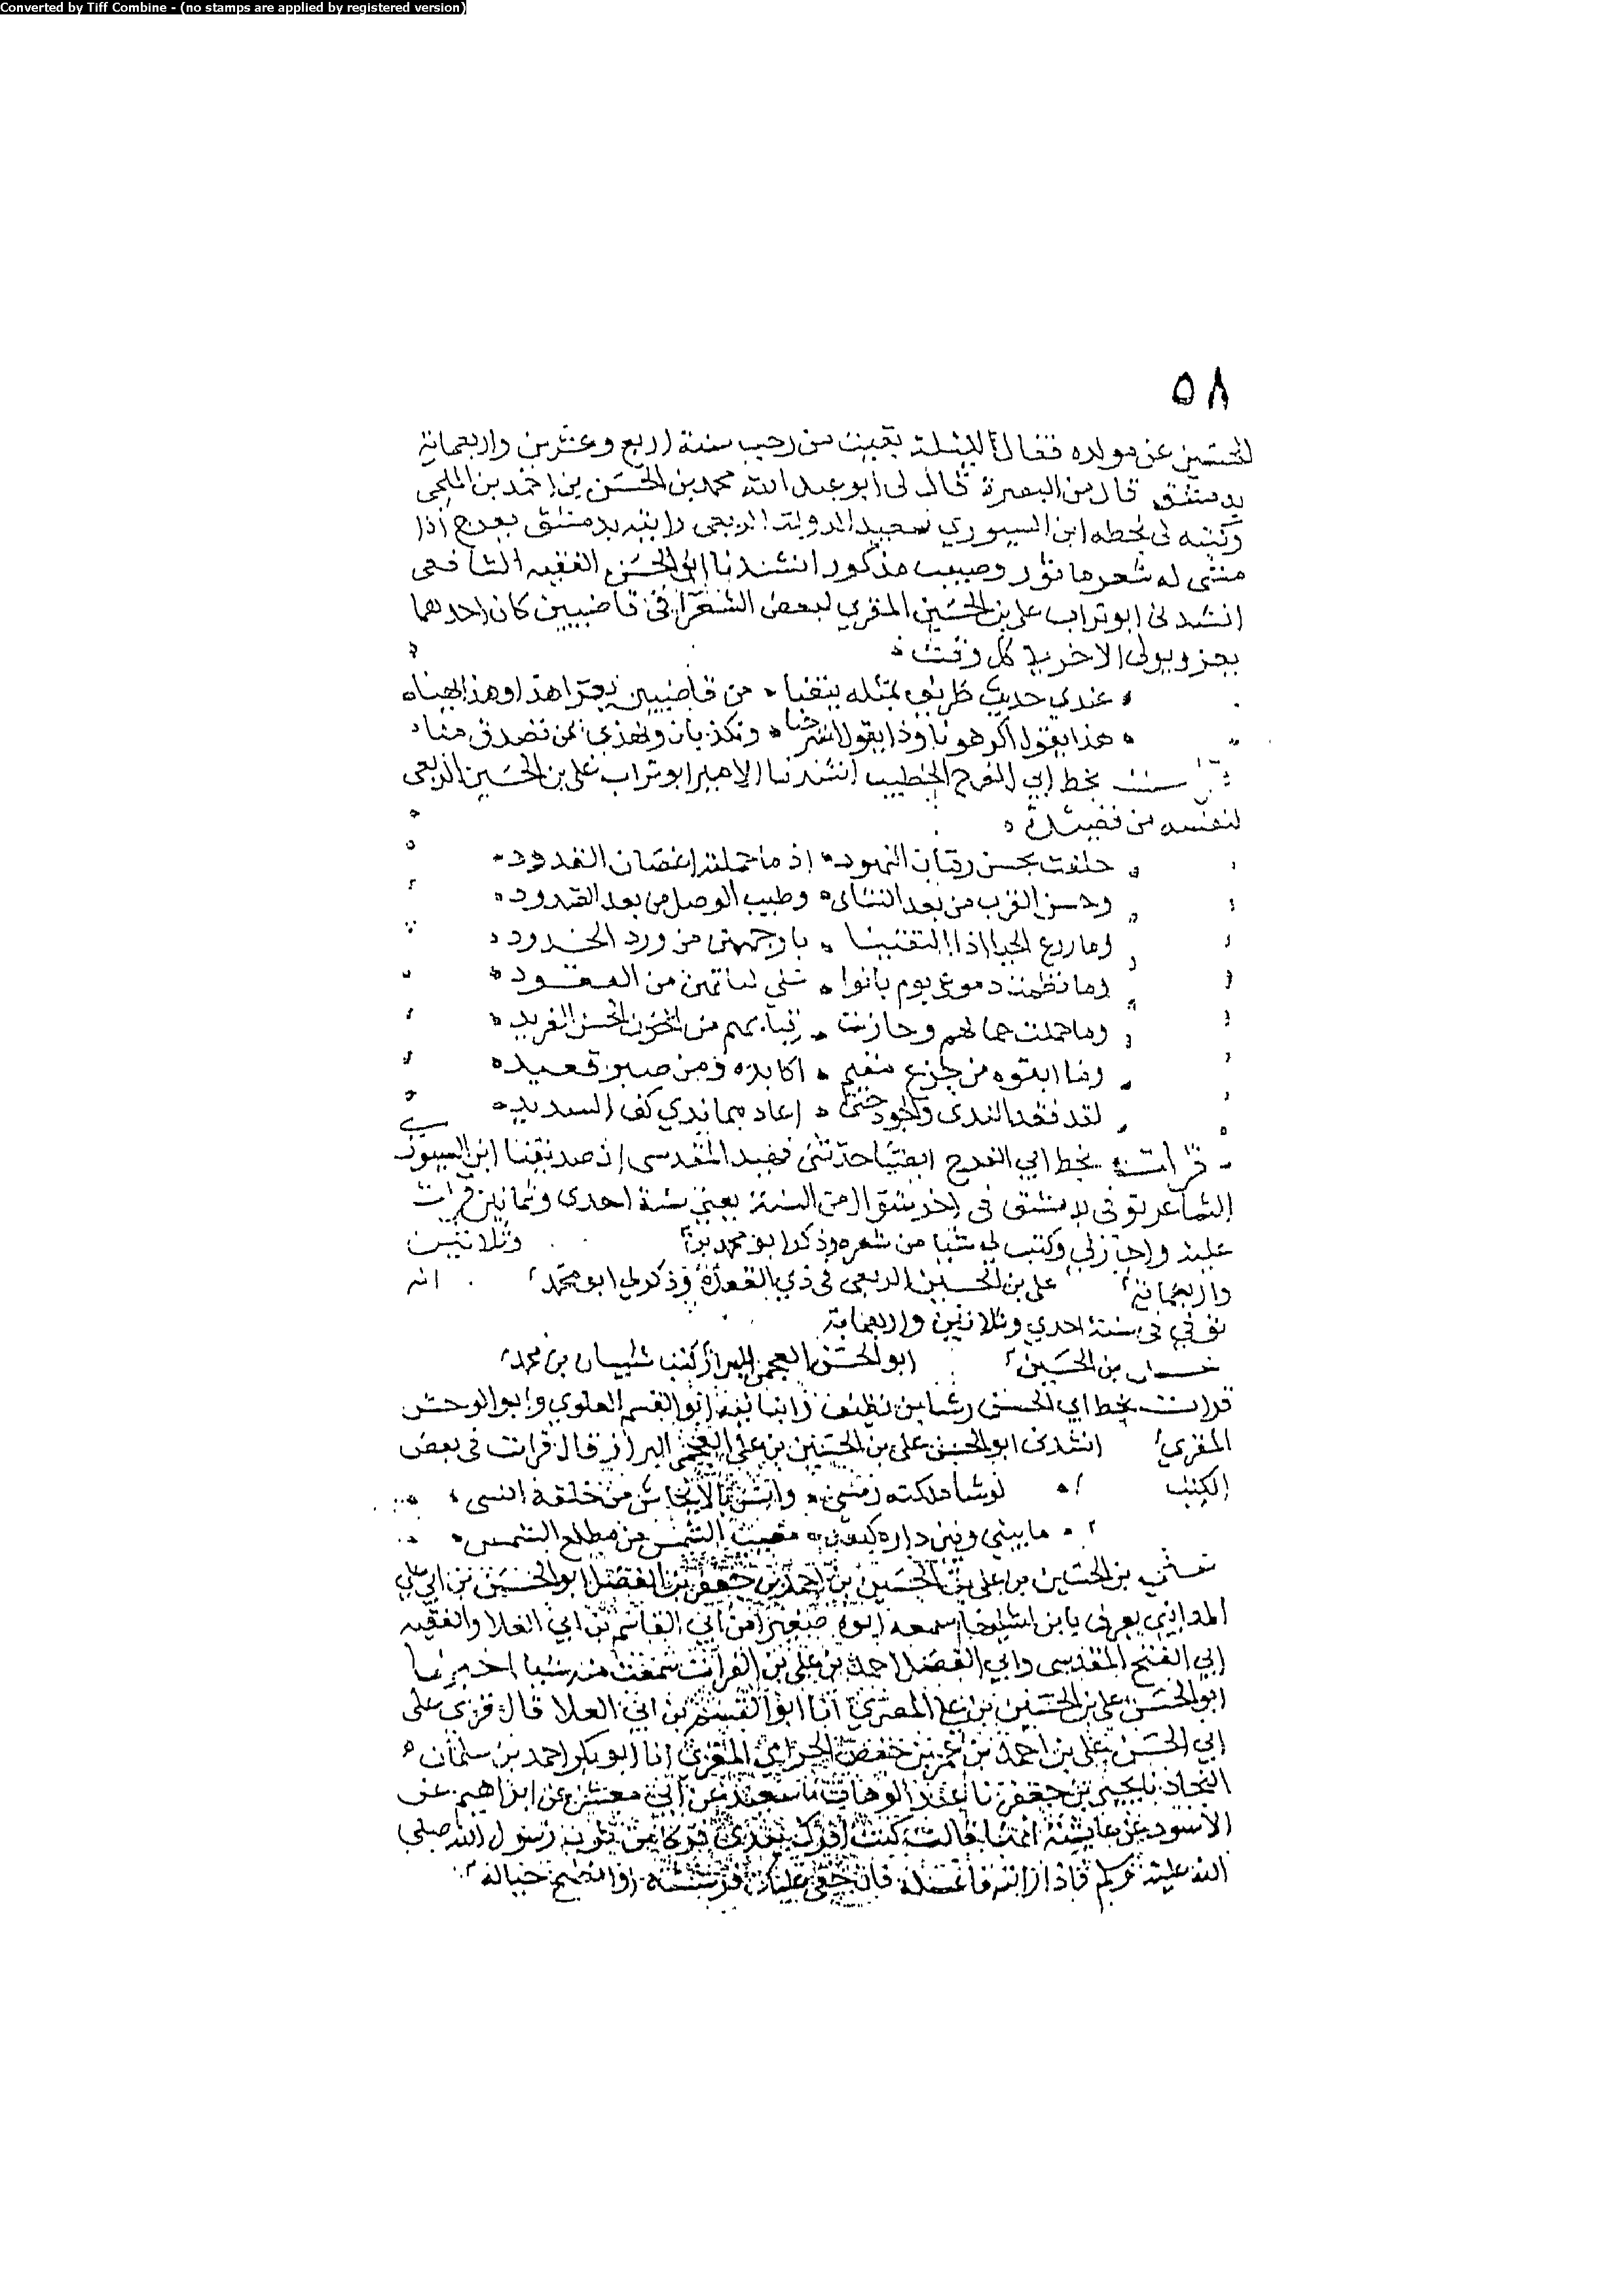 Converted by Tiff Combine - (no stamps are applied by registered version)
٥٨
الحسين عن مولده فقال لليلة بقيت من رجب سنة اربع وعشرين واربعمائة
بدمشق قال من البصرة قال لى أبو عبد الله محمد بن الحسن بن احمد بن الملحى
وكتبه لى بخطه ابن السيوري سعيد الدولة الربعى رايته بدمشق يعرج اذا
مشى له شعر ماثور وصيت مذكور انشدنا ابو الحسن الفقيه الشافعى
انشدنى ابو تراب على بن الحسين المقري لبعض الشعرا فى قاضيين كان احدهما
يعزل ويولى الاخر في كل وقت
عندي حديث ظريف بمثله يتغنا من قاضيين يعزا هذا وهذا يهناه
هذا يقول اكرهونا وذا يقول استرحنا ونكذبان ونهذي فمن نصدق منا
بخط ابي الفرج الخطيب انشدنا الامير ابو تراب على بن الحسين الربعى
لنفسه من قصيدة
حلفت بحسن ريان النهود اذ ما حملته اغصان القدود
وحسن القرب من بعد التنائى وطيب الوصل من بعد الصدود
وما زرع الحيا اذا التقينا باوجههن من ورد الخدود
وما نظمته دموعى يوم بانوا على لباتهن من العقود
وما حملت جمالهم وحازت قبابهم من الحسن الفريد
وما ابقوه من جزع مقيم اكابده ومن صبر فقيد
لقد فقد الندى والجود حتى اعادهما ندي كف السديد
قرات بخط ابي الفرج ايضا حدثنى فقيد المقدسى ان صديقنا ابن السيوري
الشاعر توفى بدمشق فى اخر شوال من السنة يعنى سنة احدى وثمانين قرات
عليه واجاز لي وكتب لي شيا من شعره وذكر ابو محمد بن وثلاثين
واربعمائة على بن الحسين الربعى فى ذي القعدة وذكر لي ابو محمد انه
توفي فى سنة احدي وثلاثين واربعماية
بن الحسين ابو الحسن العجمى البزاز كتب
قرات بخط ابي الحسن رشا بن نظيف وانبانيه ابو القسم العلوي وابو الوحش
المقري انشدنى ابو الحسن على بن الحسين بن على العجمى البزاز قال قرات فى بعض
الكتب لو شا ملكته رمسى وابتت بالايحاش من خلقه انسى
ما بيني وبين داره كبعد مغيب الشمس من مطلع الشمس
بن الحسين بن على بن الحسين بن احمد بن جعفر بن الفضل ابو الحسين بن ابي علي
يعرف بابن اسمعه ابوه صغيرا من ابي القاسم بن ابي العلا والفقيه
ابي الفتح المقدسى وابي الفضل احمد بن على بن الفرات سمعت منه شيا اخبرنا
ابو الحسن على بن الحسين بن على المصري انا ابو القسم بن ابي العلا قال قرى على
ابي الحسن على بن احمد بن عمر بن حفص الحمامي المقري انا ابو بكر احمد بن سلمان
النجاد نا يحيى بن جعفر نا عبد الوهاب نا سعيد عن ابي معشر عن ابراهيم عن
الاسود عن عايشة انها قالت كنت افرك بيدي من ثوب رسول الله صلى
الله عليه وسلم فاذا رايته فاغسله فان خفى عليك فرشه وانضح حياله